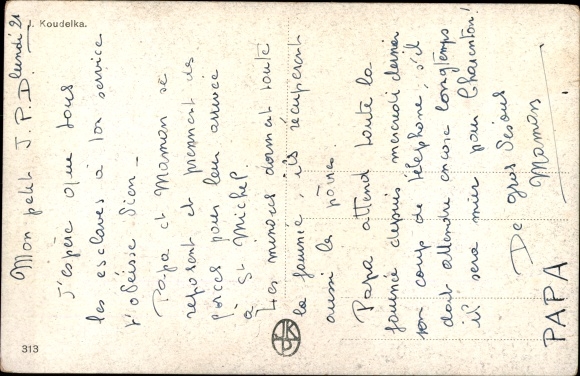 J. Koudelka.
lundi 21
Mon petit J.P.D.
J'espère que tous
les esclaves à ton service
t'obéisse bien -
Papa et Maman se
reposent et prennent des
forces pour leur arrivée
à St Michel.
Les minous dorment toute
la journée, ils récupèrent
aussi les pôvres.
Papa attend toute la
journée depuis mercredi dernier
ton coup de téléphone, s'il
doit attendre encore longtemps
il sera mûr pour Charenton!
De gros bisous
Maman
PAPA
313
JKP